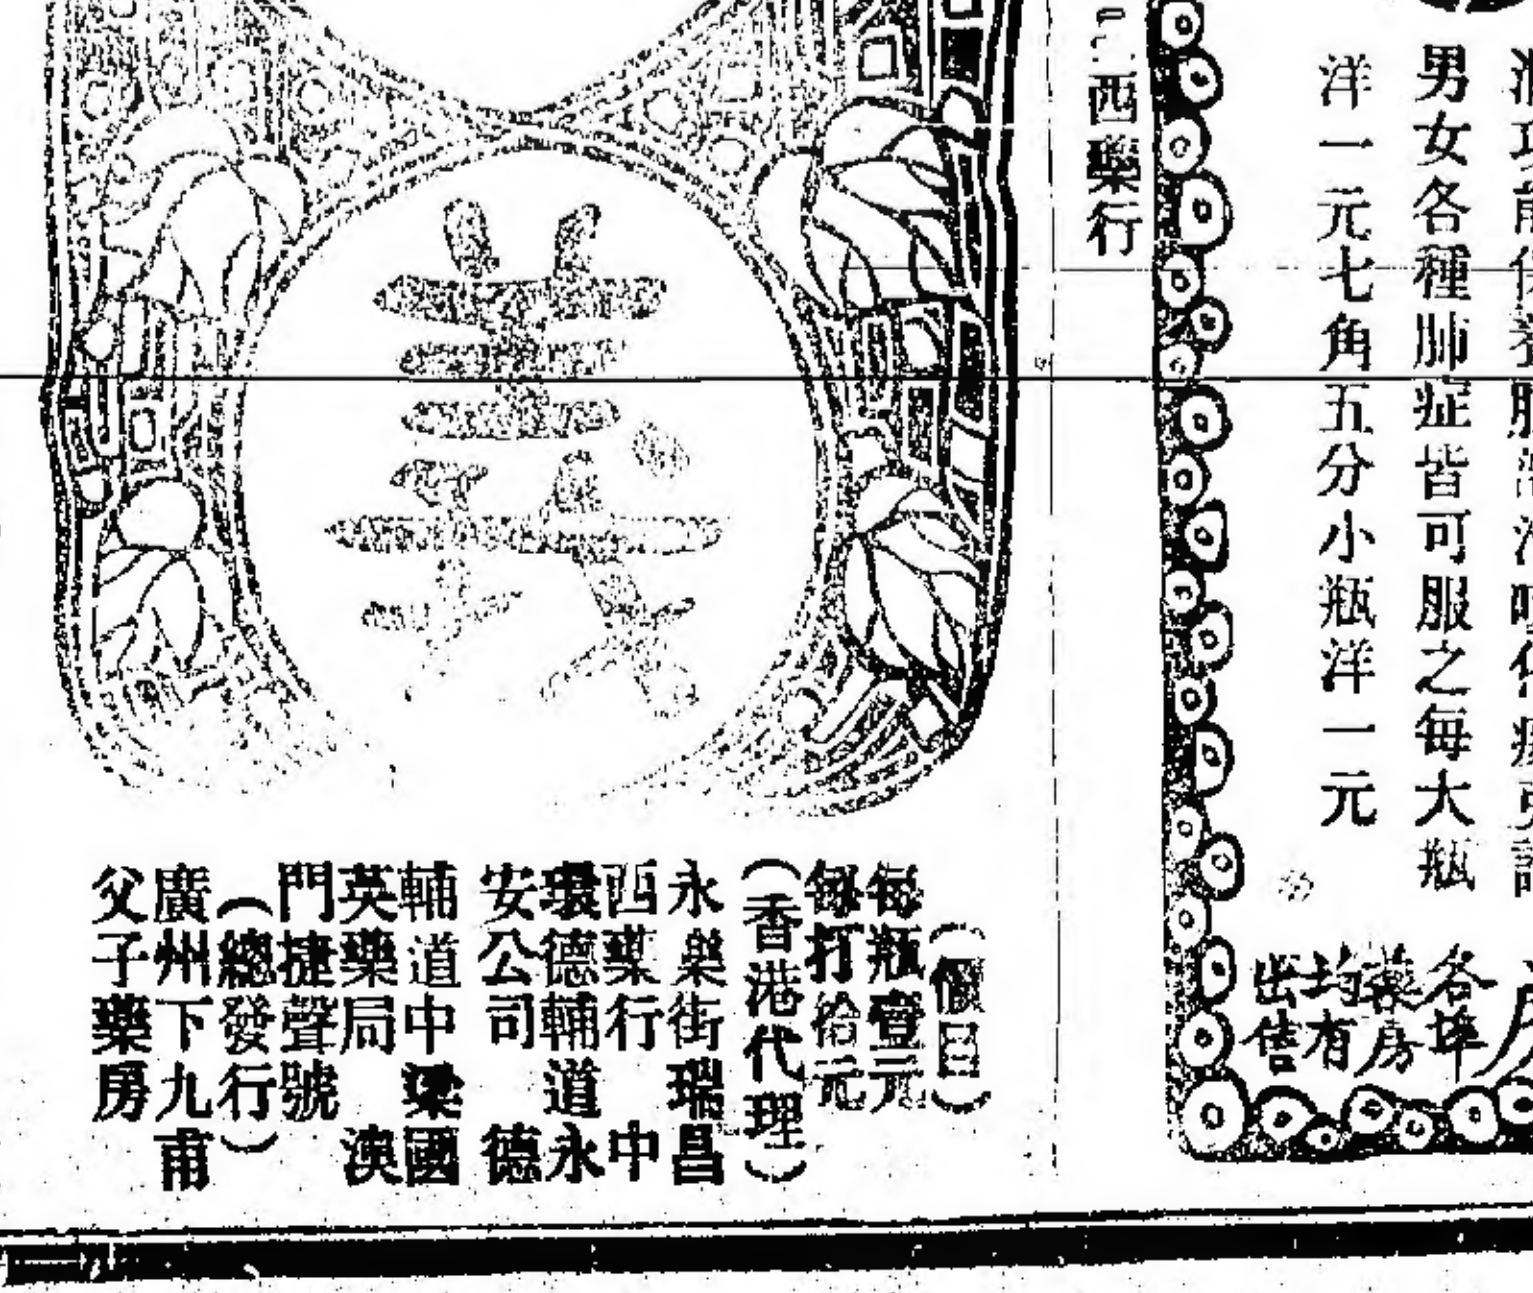 男女各種肺症皆可服之每大瓶
洋一元七角五分小瓶洋一元
各埠
藥房
均有
出售
西藥行
(價目)
每瓶壹元
每打拾元
(香港代理)
永樂街瑞昌
西藥行 中
環德輔道永
安公司 德
輔道中梁國
英藥局 澳
門捷聲號
(總發行)
廣州下九甫
父子藥房